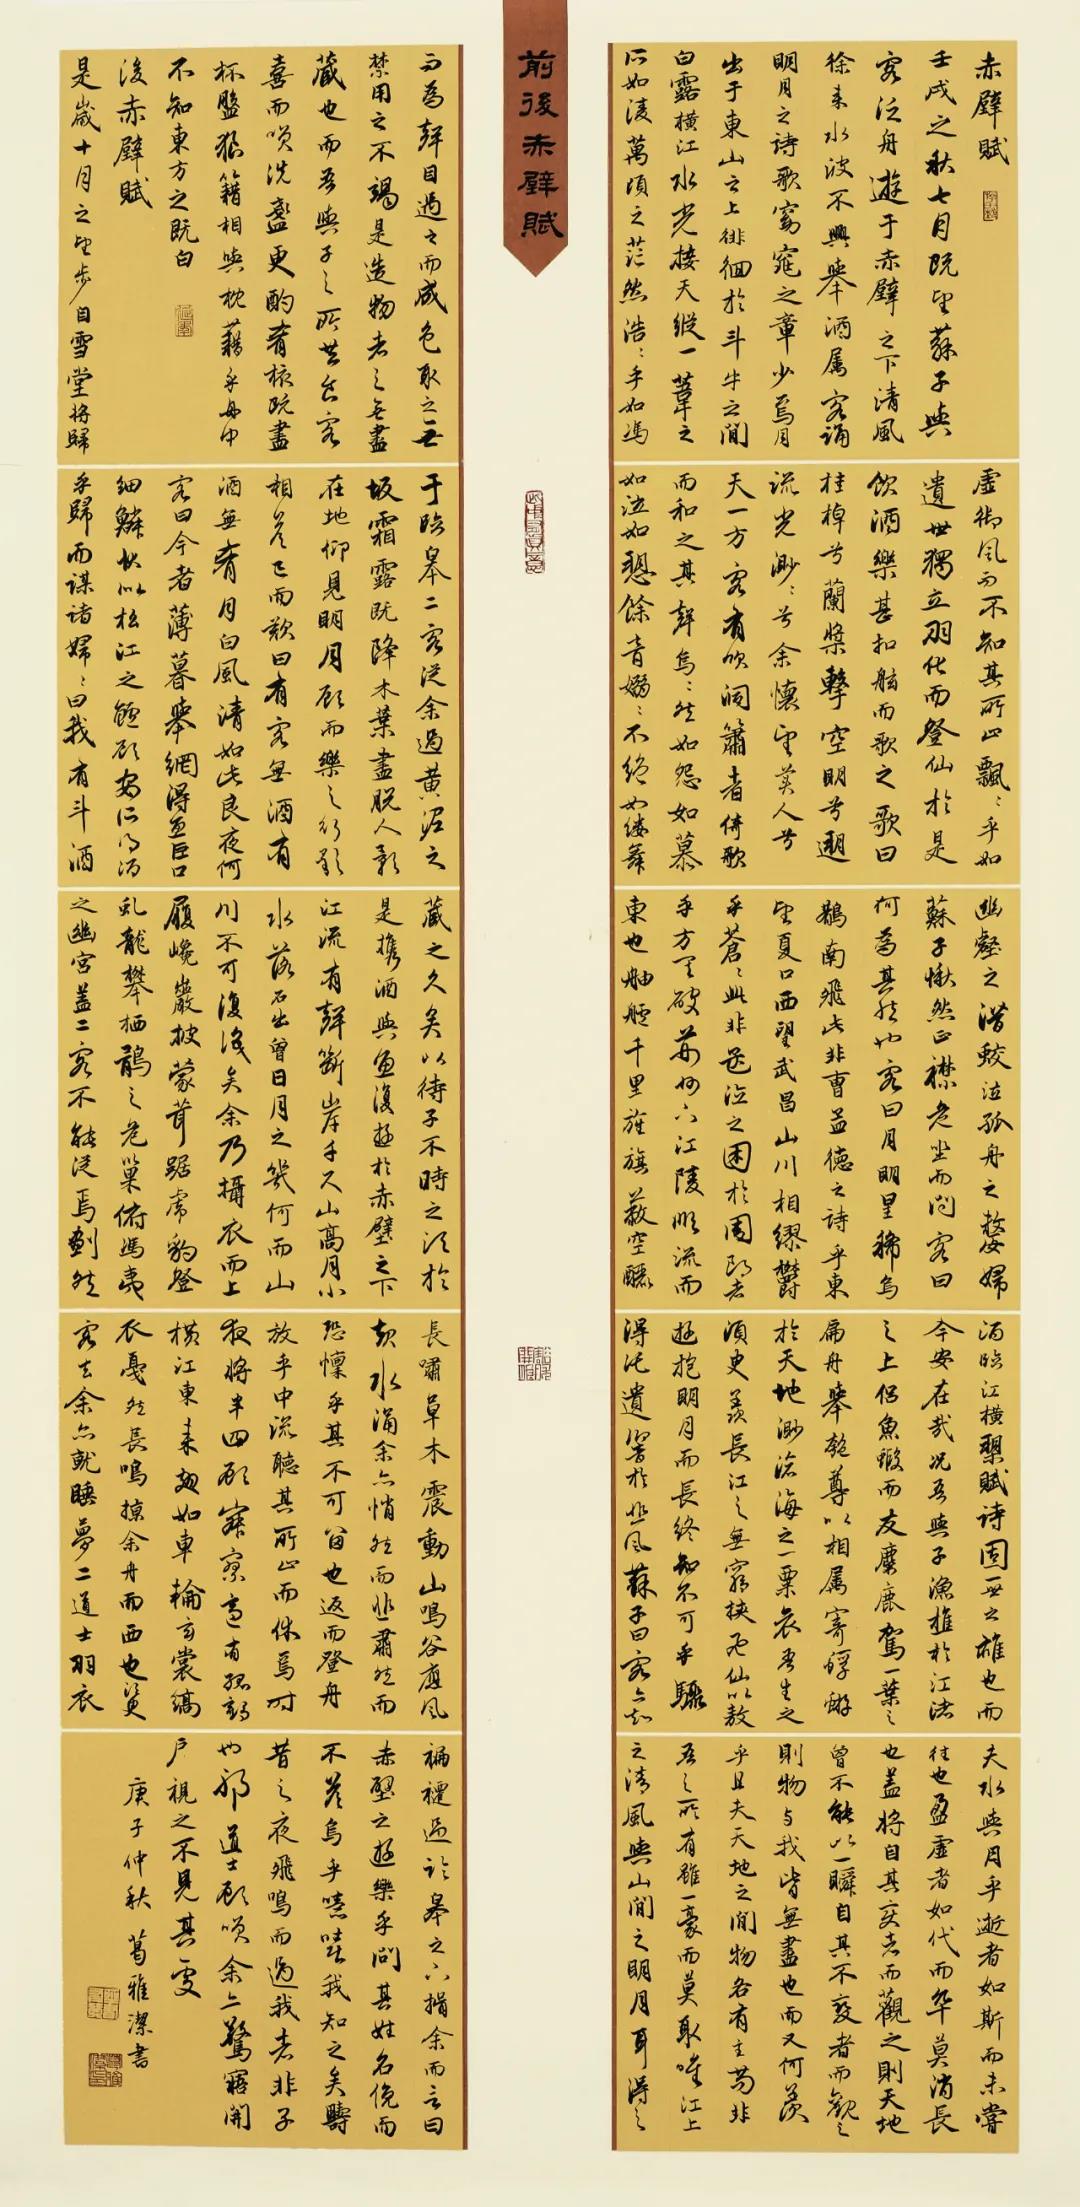 前後赤壁賦
赤壁賦
壬戌之秋七月既望蘇子與
客泛舟遊于赤壁之下清風
徐来水波不興舉酒属客誦
明月之诗歌窈窕之章少焉月
出于東山之上徘徊於斗牛之間
白露横江水光接天縱一葦之
所如凌萬頃之茫然浩〻乎如馮
虚御風而不知其所止飄〻乎如
遺世獨立羽化而登仙於是
飲酒樂甚扣舷而歌之歌曰
桂棹兮蘭槳擊空明兮遡
流光渺〻兮余懷望美人兮
天一方客有吹洞簫者倚歌
而和之其聲嗚〻然如怨如慕
如泣如愬餘音嫋〻不絕如縷舞
幽壑之潛蛟泣孤舟之嫠婦
蘇子愀然正襟危坐而問客曰
何為其然也客曰月明星稀烏
鵲南飛此非曹孟德之詩乎東
望夏口西望武昌山川相繆鬱
乎蒼〻此非孟德之困於周郎者
乎方其破荆州下江陵順流而
東也舳艫千里旌旗蔽空釃
酒臨江横槊賦诗固一世之雄也而
今安在哉况吾與子漁樵於江渚
之上侣魚蝦而友麋鹿駕一葉之
扁舟舉匏尊以相属寄蜉蝣
於天地渺滄海之一粟哀吾生之
須臾羨長江之無窮挾飛仙以敖
遊抱明月而長終知不可乎驟
得託遺響於悲風蘇子曰客亦知
夫水與月乎逝者如斯而未嘗
往也盈虛者如代而卒莫消長
也盖將自其变者而觀之則天地
曾不能以一瞬自其不變者而觀之
則物与我皆無盡也而又何羨
乎且夫天地之間物各有主苟非
吾之所有雖一豪而莫取唯江上
之清風與山間之明月耳得之
而為聲目遇之而成色取之無
禁用之不竭是造物者之無盡
藏也而吾與子之所共食客
喜而笑洗盞更酌肴核既盡
杯盤狼籍相與枕藉乎舟中
不知東方之既白
後赤壁賦
是歲十月之望步自雪堂將歸
于臨皋二客從余過黄泥之
坂霜露既降木葉盡脱人影
在地仰見明月顾而樂之行歌
相答已而歎曰有客無酒有
酒無肴月白風清如此良夜何
客曰今者薄暮舉網得魚巨口
细鱗狀似松江之鱸顾安所得酒
乎歸而謀诸婦〻曰我有斗酒
藏之久矣以待子不時之須於
是攜酒與魚復遊於赤壁之下
江流有聲斷岸千尺山高月小
水落石出曾日月之幾何而山
川不可復識矣余乃攝衣而上
履巉巖披蒙茸踞虎豹登
虬龍攀栖鶻之危巢俯馮夷
之幽宫盖二客不能從焉劃然
長嘯草木震動山鳴谷應風
起水涌余亦悄然而悲肅然而
恐懍乎其不可留也返而登舟
放乎中流聽其所止而休焉時
夜將半四顾寂寥適有孤鶴
横江東来翅如車輪玄裳縞
衣戛然長鳴掠余舟而西也须臾
客去余亦就睡夢二道士羽衣
褊褼過臨皋之下揖余而言曰
赤壁之遊樂乎問其姓名俛而
不答烏乎噫嘻我知之矣疇
昔之夜飛鳴而過我者非子
也邪道士顾笑余亦驚寤開
户視之不見其處
庚子仲秋 葛雅潔書